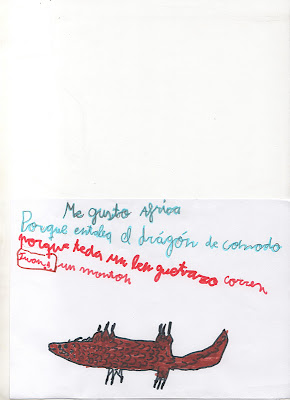 Me gusto africa
Porque entaba el drágón de comodo
porque teda un lenguetazo corren
Juan un monton